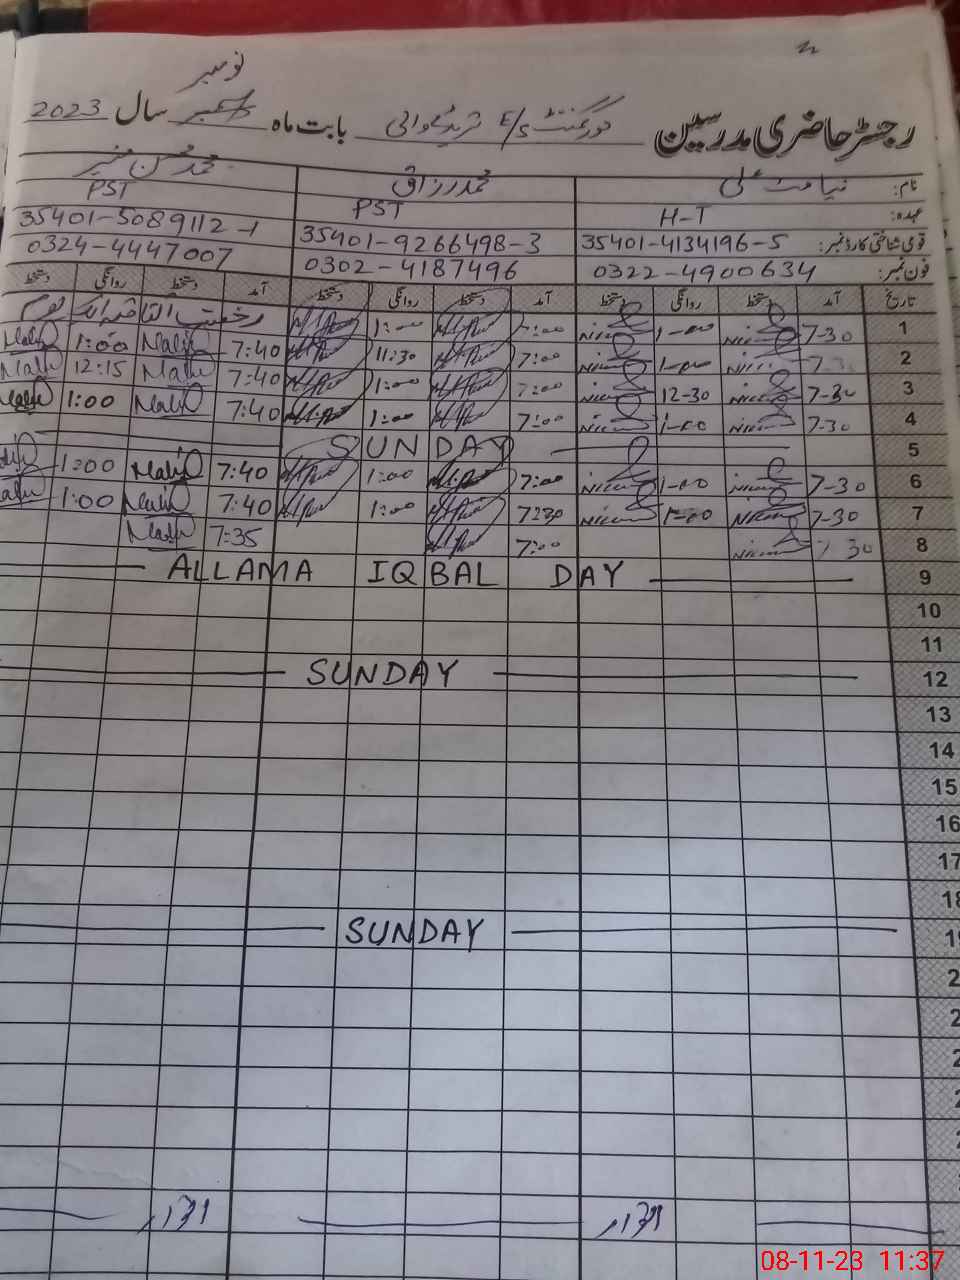 نومبر
رجسٹر حاضری مدرسین گورنمنٹ E/S بابت ماہ دسمبر سال 2023
نام: نیامت علی محمد رزاق محمد محسن منیر
عہدہ: H-T PST PST
قومی شناختی کارڈ نمبر: 35401-4134196-5 35401-9266498-3 35401-5089112-1
فون نمبر: 0322-4900634 0302-4187496 0324-4447007
تاریخ آمد دستخط روانگی دستخط آمد دستخط روانگی دستخط آمد دستخط روانگی دستخط
1 7-30 1-00 7:00 1:00 رخصت اتفاقیہ ایک یوم
2 7-30 1-00 7:00 11:30 7:40 1:00
3 7-30 12-30 7:00 1:00 7:40 12:15
4 7-30 1-00 7:00 1:00 7:40 1:00
5 SUNDAY
6 7-30 1-00 7:00 1:00 7:40 1:00
7 7-30 1-00 7:30 1:00 7:40 1:00
8 7-30 7:00 7:35
9 ALLAMA IQBAL DAY
10
11
12 SUNDAY
13
14
15
16
17
18
19 SUNDAY
اتوار اتوار
08-11-23 11:37